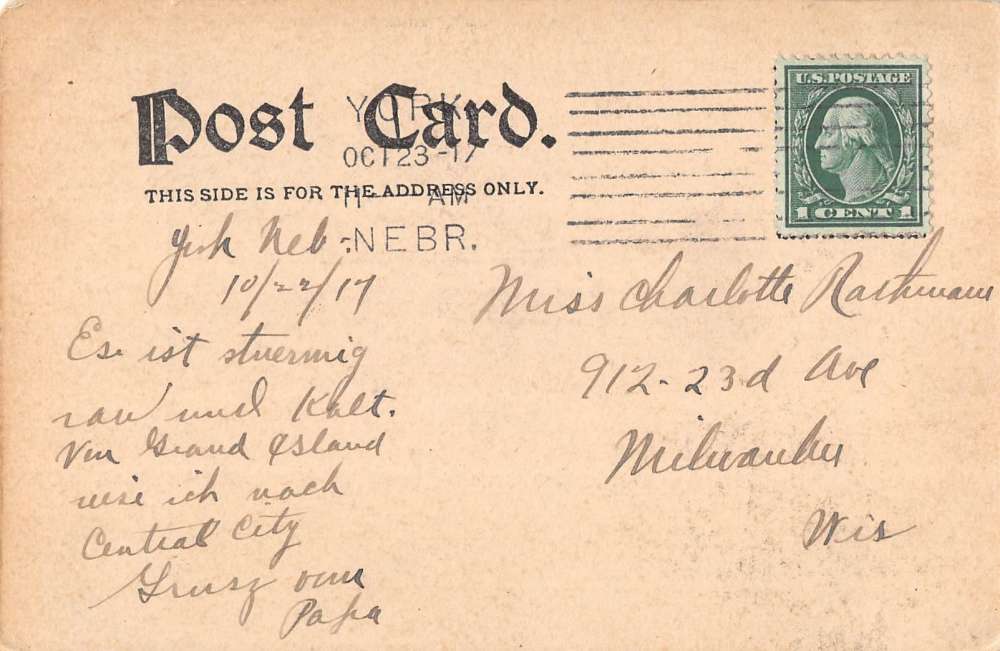 Post Card.
THIS SIDE IS FOR THE ADDRESS ONLY.
YORK
OCT 23-17
11 AM
NEBR.
U.S. POSTAGE
1 CENT 1
York Neb -
10/22/17
Es ist stuermig
rau und Kalt.
Von Grand Island
reise ich nach
Central City
Grusz vom
Papa
Miss Charlotte
912 - 23d Ave
Milwaukee
Wis